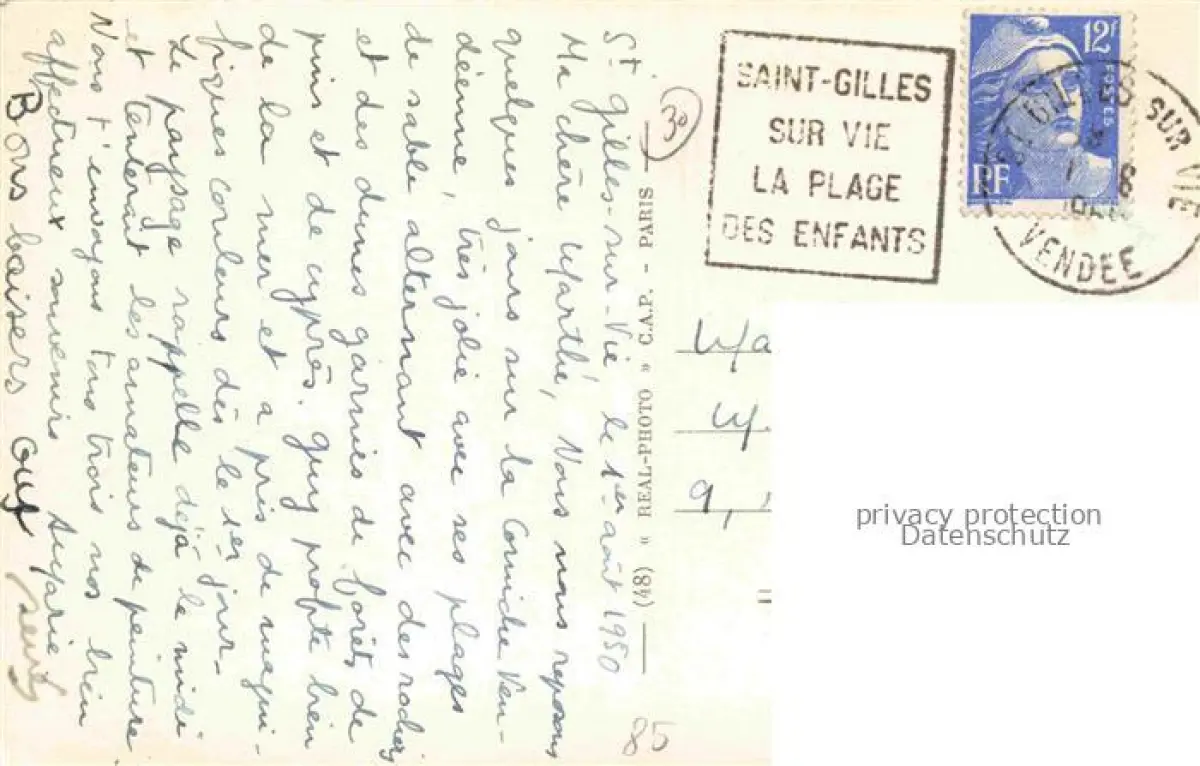 St Gilles-sur-Vie le 1er août 1950
Ma chère Marthe, Nous nous reposons
quelques jours sur la Corniche Ven-
déenne, très jolie avec ses plages
de sable alternant avec des rochers
et des dunes garnies de forêts de
pins et de cyprès. Guy profite bien
de la mer et a pris de magni-
fiques couleurs dès le 1er jour_
Le paysage rappelle déjà le midi
et tenterait les amateurs de peinture
Nous t'envoyons tous trois nos bien
affectueux souvenirs
Bons baisers Guy
(48) « REAL-PHOTO » C.A.P. - PARIS
30
85
SAINT-GILLES
SUR VIE
LA PLAGE
DES ENFANTS
12F
POSTES
RF
GILLES SUR VIE
VENDEE
9,
privacy protection
Datenschutz